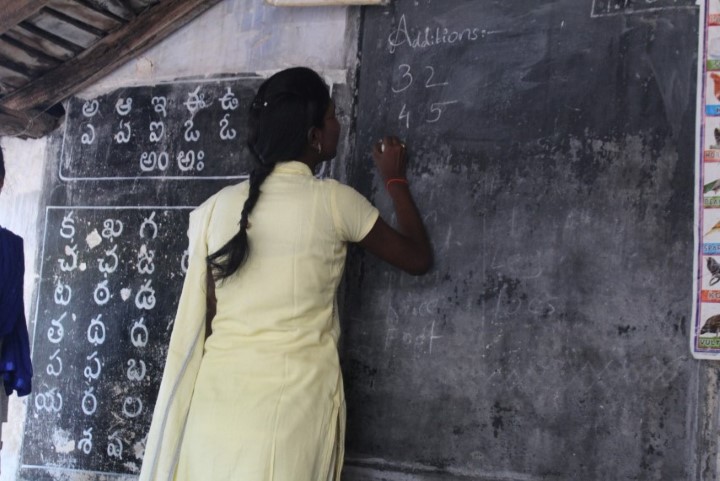 అ ఆ ఇ ఈ ఉ
ఎ ఏ ఐ ఒ ఓ
అం అః
క ఖ గ
చ ఛ జ
ట ఠ డ
త థ ద
ప ఫ బ
య ర ల
శ ష
Additions:-
3 2
4 5